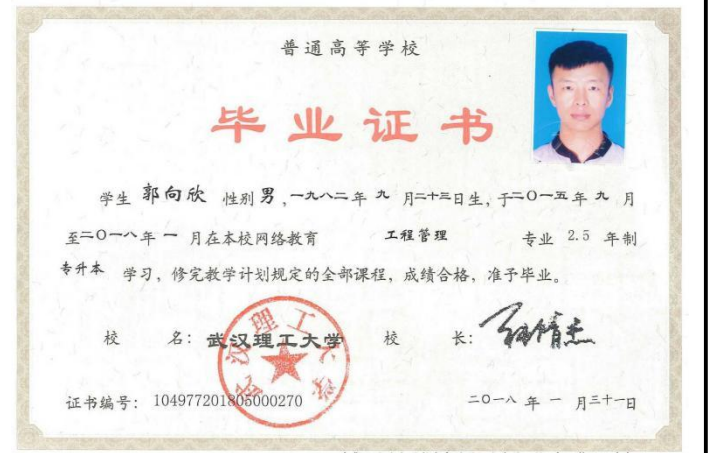 普通高等学校
毕业证书
学生 郭向欣 性别 男 ,一九八二年 九 月二十三日生, 于二〇一五年 九 月
至二〇一八年 一 月在本校网络教育 工程管理 专业 2.5 年制
专升本 学习, 修完教学计划规定的全部课程, 成绩合格, 准予毕业。
校 名: 武汉理工大学 校 长:
武汉理工大学
证书编号: 104977201805000270 二〇一八 年 一 月三十一日